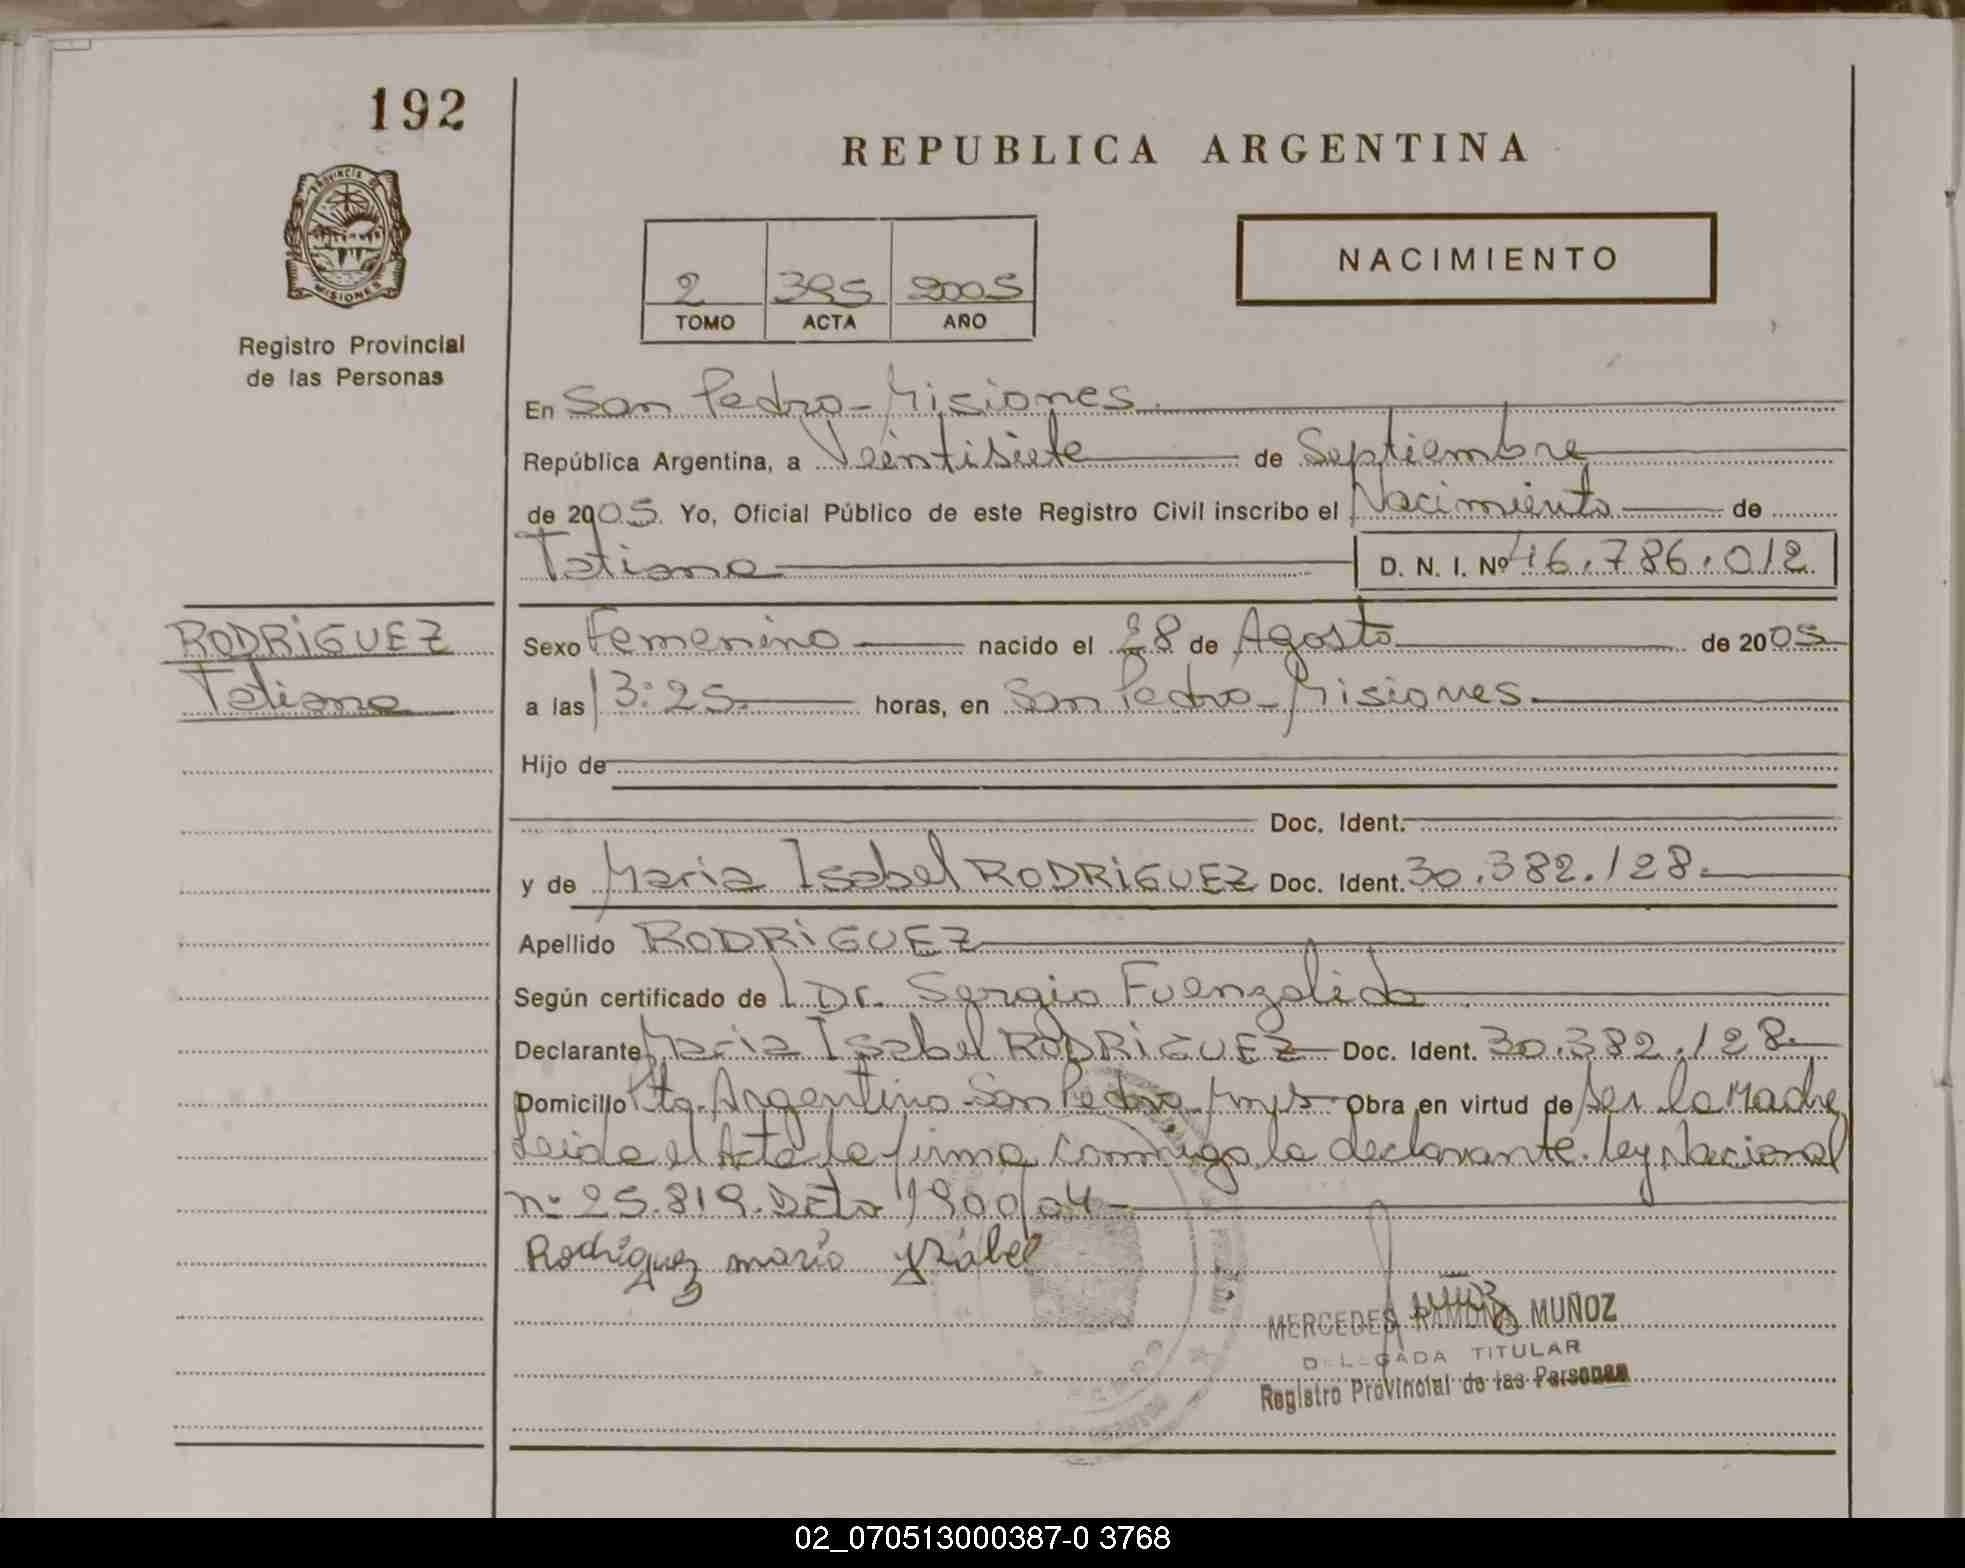 192
REPUBLICA ARGENTINA
PROVINCIA DE
MISIONES
NACIMIENTO
2 395 2005
TOMO ACTA AÑO
Registro Provincial
de las Personas
En San Pedro - Misiones
República Argentina, a Veintisiete de Septiembre
de 2005. Yo, Oficial Público de este Registro Civil inscribo el Nacimiento de
Tatiana D. N. I. Nº 46.786.012
RODRIGUEZ
Tatiana
Sexo Femenino nacido el 28 de Agosto de 2005
a las 13:25 horas, en San Pedro - Misiones
Hijo de
Doc. Ident.
y de Maria Isabel RODRIGUEZ Doc. Ident. 30.382.128.
Apellido RODRIGUEZ
Según certificado de Dr. Sergio Fuenzalida
Declarante Maria Isabel RODRIGUEZ Doc. Ident. 30.382.128.
Domicilio Pto. Argentino San Pedro Mnes Obra en virtud de Ser la Madre
Leida el Acta la firma conmigo la declarante. Ley Nacional
nº 25.819. Dcto 1900/04
Rodríguez maría Ysabel
MERCEDES RAMONA MUÑOZ
DELEGADA TITULAR
Registro Provincial de las Personas
02_070513000387-0 3768